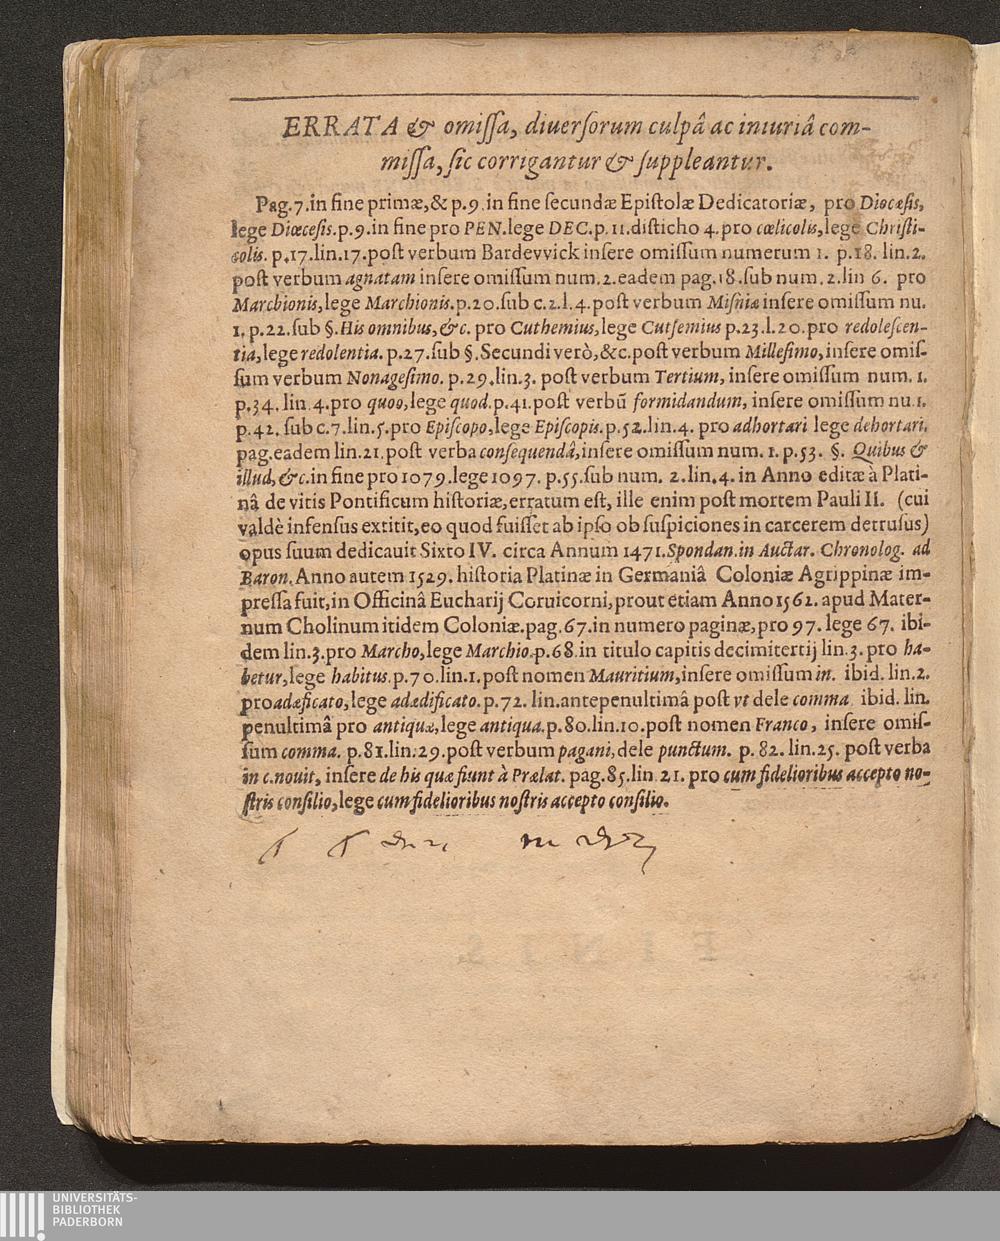 ERRATA & omiſſa, diuerſorum culpâ ac iniuriâ com-
miſſa, ſic corrigantur & ſuppleantur.
Pag.7.in fine primæ,& p.9.in fine ſecundæ Epiſtolæ Dedicatoriæ, pro Diocæſis,
lege Diœceſis.p.9.in fine pro PEN.lege DEC.p.11.diſticho 4.pro cœlicolis,lege Chriſti-
colis. p.17.lin.17.poſt verbum Bardevvick inſere omiſſum numerum 1. p.18. lin.2.
poſt verbum agnatam inſere omiſſum num.2.eadem pag.18.ſub num.2.lin 6. pro
Marcbionis,lege Marchionis.p.20.ſub c.2.l.4.poſt verbum Miſniæ inſere omiſſum nu.
1. p.22.ſub §.His omnibus,&c. pro Cuthemius,lege Cutſemius p.23.l.20.pro redoleſcen-
tia,lege redolentia. p.27.ſub §.Secundi verò,&c.poſt verbum Milleſimo,inſere omiſ-
ſum verbum Nonageſimo. p.29.lin.3. poſt verbum Tertium, inſere omiſſum num. 1.
p.34. lin.4.pro quoo,lege quod.p.41.poſt verbū formidandum, inſere omiſſum nu.1.
p.42. ſub c.7.lin.5.pro Epiſcopo,lege Epiſcopis.p.52.lin.4. pro adhortari lege dehortari.
pag.eadem lin.21.poſt verba conſequendâ,inſere omiſſum num. 1. p.53. §. Quibus &
illud,&c.in fine pro 1079.lege 1097. p.55.ſub num. 2.lin.4. in Anno editæ à Plati-
nâ de vitis Pontificum hiſtoriæ,erratum eſt, ille enim poſt mortem Pauli II. (cui
valdè infenſus extitit,eo quod fuiſſet ab ipſo ob ſuſpiciones in carcerem detruſus)
opus ſuum dedicauit Sixto IV. circa Annum 1471.Spondan.in Auctar. Chronolog. ad
Baron.Anno autem 1529. hiſtoria Platinæ in Germaniâ Coloniæ Agrippinæ im-
preſſa fuit,in Officinâ Eucharij Ceruicorni,prout etiam Anno 1562. apud Mater-
num Cholinum itidem Coloniæ.pag.67.in numero paginæ,pro 97. lege 67. ibi-
dem lin.3.pro Marcho,lege Marchio.p.68.in titulo capitis decimitertij lin.3. pro ha-
betur,lege habitus.p.70.lin.1.poſt nomen Mauritium,inſere omiſſum in. ibid. lin.2.
pro adæficato,lege adædificato.p.72. lin.antepenultimâ poſt vt dele comma. ibid. lin.
penultimâ pro antiquæ,lege antiqua.p.80.lin.10.poſt nomen Franco, inſere omiſ-
ſum comma. p.81.lin.29.poſt verbum pagani,dele punctum. p. 82. lin.25. poſt verba
in c.nouit, inſere de his quæ fiunt à Prælat. pag.85.lin.21. pro cum fidelioribus accepto no-
ſtris conſilio,lege cum fidelioribus noſtris accepto conſilio.
UNIVERSITÄTS-
BIBLIOTHEK
PADERBORN